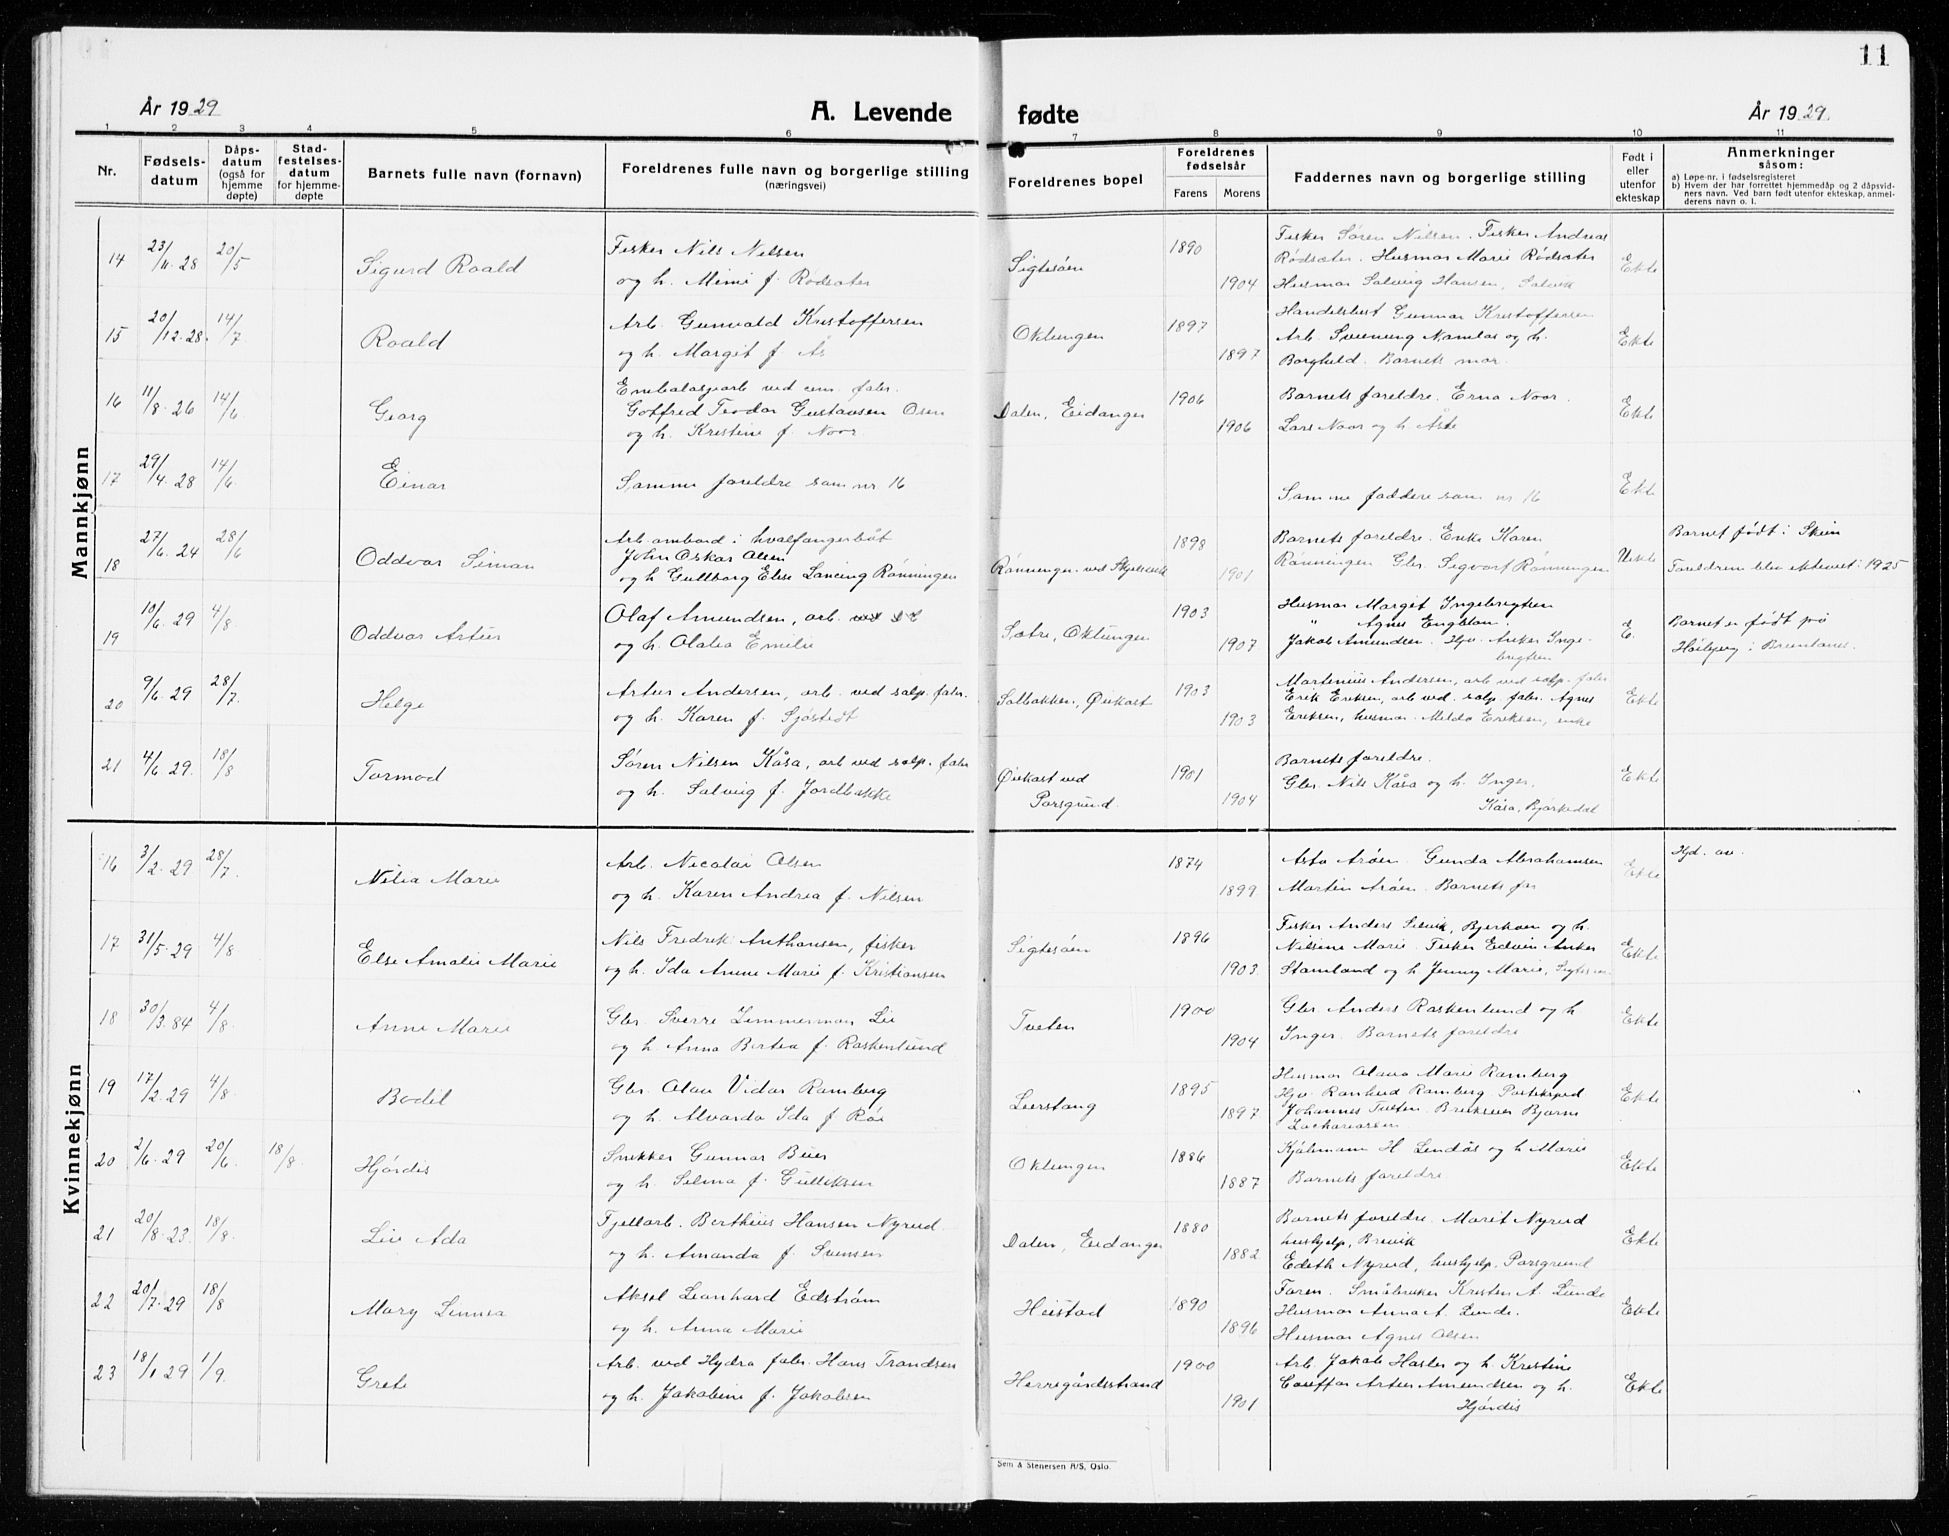 11
År 1929
A. Levende fødte
År 1929
1 2 3 4 5 6 7 8 9 10 11
Nr.
Fødsels-
datum
Dåps-
datum
(også for
hjemme
døpte)
Stad-
festelses-
datum
for hjemme-
døpte
Barnets fulle navn (fornavn)
Foreldrenes fulle navn og borgerlige stilling
(næringsvei)
Foreldrenes bopel
Foreldrenes
fødselsår
Farens Morens
Faddernes navn og borgerlige stilling
Født i
eller
utenfor
ekteskap
Anmerkninger
såsom:
a) Løpe-nr. i fødselsregisteret
b) Hvem der har forrettet hjemmedåp og 2 dåpsvid-
ners navn. Ved barn født utenfor ekteskap, anmel-
derens navn o. l.
Mannkjønn
14 23/11 28 20/5 Sigurd Roald
Fisker Nils Nilsen
og h. Mimi f. Rødsæter
Sigtesøen 1890 1904
Fisker Søren Nilsen. Fisker Andreas
Rødsæter. Husmor Marie Rødsæter
Husmor Solveig Hansen, Salvik
Ekte
15 20/12 28. 14/7 Roald
Arb. Gunvald Kristoffersen
og h. Margit f. Ås
Oklungen 1897 1897
Handelsbest Gunnar Kristoffersen
Arb. Sveinung Nanelas og h.
Borghild. Barnets mor.
Ekte
16 11/8 26 14/6 Georg
Emballasjearb ved cem. fabr.
Gotfred Teodor Gustavsen Osen
og h. Kristine f. Noor.
Dalen, Eidanger 1906 1906
Barnets foreldre. Erna Noor.
Lars Noor og h Åste
Ekte
17 29/4 28 14/6 Einar
Samme foreldre som nr 16
Samme faddere som nr 16
Ekte
18 27/6 24 28/6 Oddvar Simon
Arb ombord i hvalfangerbåt
John Oskar Olsen
og h Gullborg Elise Lancing Rønningen
Rønningen ved Skjelsvik 1898 1901
Barnets foreldre. Enke Karen
Rønningen Gbr. Sigvart Rønningen
Uekte
Barnet født i Skien
Foreldrene blev ekteviet i 1925
19 10/6 29 4/8. Oddvar Artur
Olaf Amundsen, arb.
og h. Olalia Emilie
Sætre, Oklungen 1903 1907
Husmor Margit Ingebrigtsen
" Agnes Engblom.
Jakob Amundsen. Hjv. Anker Inge-
brigtsen
E.
Barnet er født på
Høibjerg i Brunlanes.
20 9/6 29 28/7. Helge
Artur Andersen, arb. ved salp. fabr.
og h. Karen f. Sjøstedt
Solbakken, Ørekast 1903 1903
Martinius Andersen, arb ved salp. fabr
Erik Eriksen, arb ved. salp. fabr. Agnes
Eriksen, husmor. Milda Eriksen, enke
Ekte
21 4/6 29. 18/8 Tormod
Søren Nilsen Kåsa, arb ved salp. fabr
og h. Solveig f. Jordbakke
Ørekast ved
Porsgrund. 1901 1904
Barnets foreldre.
Gbr. Nils Kåsa og h. Inger,
Kåsa, Bjørkedal
Ekte
Kvinnekjønn
16 3/2 29 28/7. Nilia Marie
Arb. Nicolai Olsen
og h. Karen Andrea f. Nilsen
1874 1899
Asta Arøen. Gunda Abrahamsen
Martin Arøen. Barnets far
Ekte
Hjd. av.
17 31/5 29 4/8. Else Amalie Marie
Nils Fredrik Anthonsen, fisker
og h. Ida Anne Marie f. Kristiansen
Sigtesøen 1896 1903.
Fisker Anders Silvik, Bjerkøen og h.
Nilsine Marie. Fisker Edvin Anker
Stamland og h. Jenny Marie, Sigtesøen
Ekte
18 30/3 84 4/8. Anne Marie
Gbr. Sverre Zimmerman Lie
og h Anna Bertea f. Raskenlund
Tveten 1900 1904
Gbr Anders Raskenlund og h
Inger. Barnets foreldre
Ekte
19 17/2 29 4/8. Bodil
Gbr. Olav Vidar Ramberg
og h. Alvarda Ida f Røe
Lierstang 1895 1897
Husmor Olava Marie Ramberg
Hjv. Ranheid Ramberg Postekspd
Johannes Tveten. Bjarne
Zachariassen
Ekte
20 2/6 29 20/6. 18/8. Hjørdis
Snekker Gunnar Buer
og h. Selma f. Gulliksen
Oklungen 1886 1887
Kjøbmann H Lindås og h Marie
Barnets foreldre
Ekte
21 20/8 23. 18/8. Liv Ada
Fjellarb. Berthius Hansen Nyrud
og h. Amanda f. Svensen
Dalen, Eidanger 1880 1882
Barnets foreldre. Marit Nyrud
hushjelp, Brevik
Edith Nyrud, hushjelp, Porsgrund
Ekte
22 20/7 29 18/8 Mary Linnea
Aksel Leonhard Edstrøm
og h. Anna Marie
Heistad 1890 1896
Faren. Småbruker Kristen A. Lunde
Husmor Anna A. Lunde.
Husmor Agnes Olsen
Ekte
23 18/1 29 1/9. Grete
Arb. ved Hydro fabr. Hans Trondsen
og h. Jakobine f. Jakobsen
Herregårdsstrand 1900 1901
Arb. Jakob Hasler og h. Kristine
Artur Amundsen og h.
Hjørdis
Ekte
Sem & Stenersen A/S, Oslo.